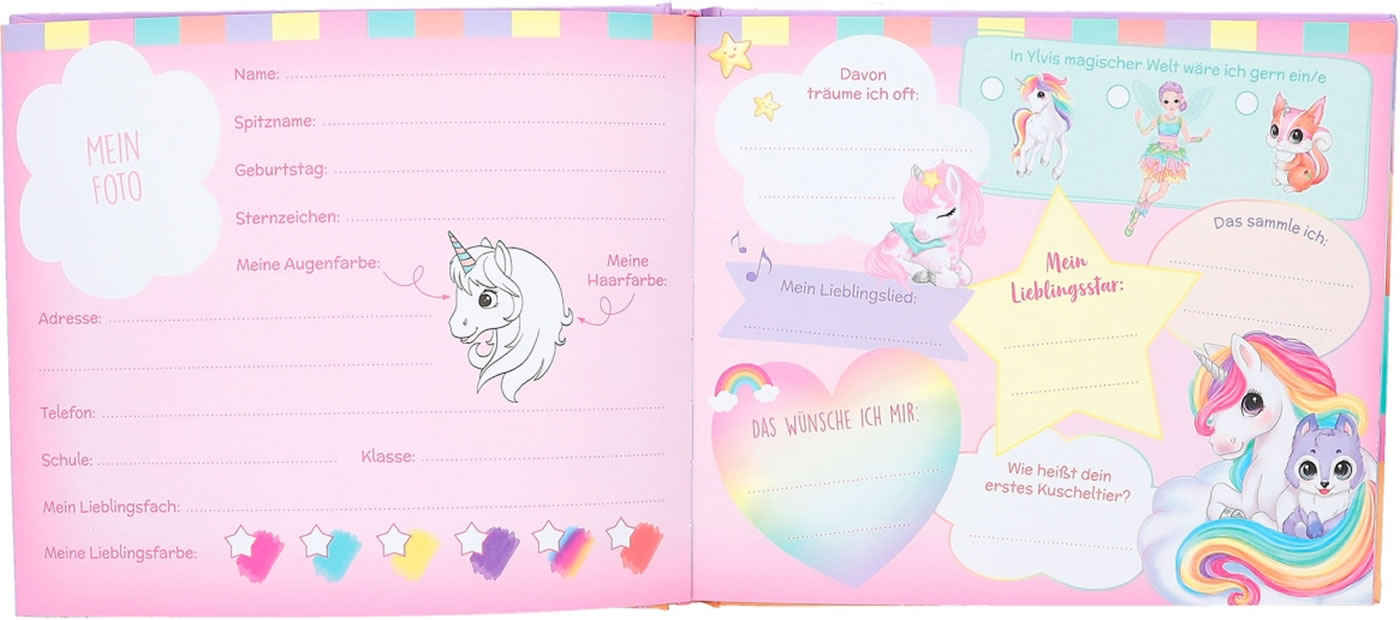 MEIN
FOTO
Name:
Spitzname:
Geburtstag:
Sternzeichen:
Meine Augenfarbe:
Meine
Haarfarbe:
Adresse:
Telefon:
Schule:
Klasse:
Mein Lieblingsfach:
Meine Lieblingsfarbe:
Davon
träume ich oft:
In Ylvis magischer Welt wäre ich gern ein/e
Das sammle ich:
Mein Lieblingslied:
Mein
Lieblingsstar:
DAS WÜNSCHE ICH MIR:
Wie heißt dein
erstes Kuscheltier?